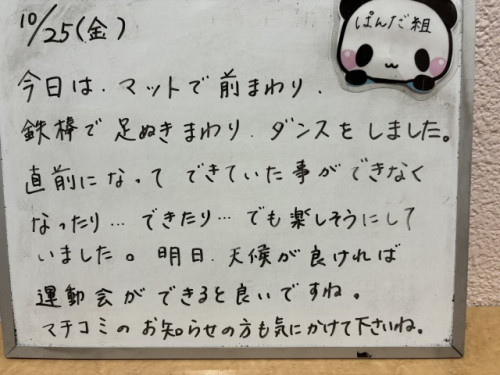 10/25(金)
ぱんだ組
今日は、マットで前まわり、
鉄棒で足ぬきまわり、ダンスをしました。
直前になってできていた事ができなく
なったり…できたり…でも楽しそうにして
いました。明日、天候が良ければ
運動会ができると良いですね。
マチコミのお知らせの方も気にかけて下さいね。